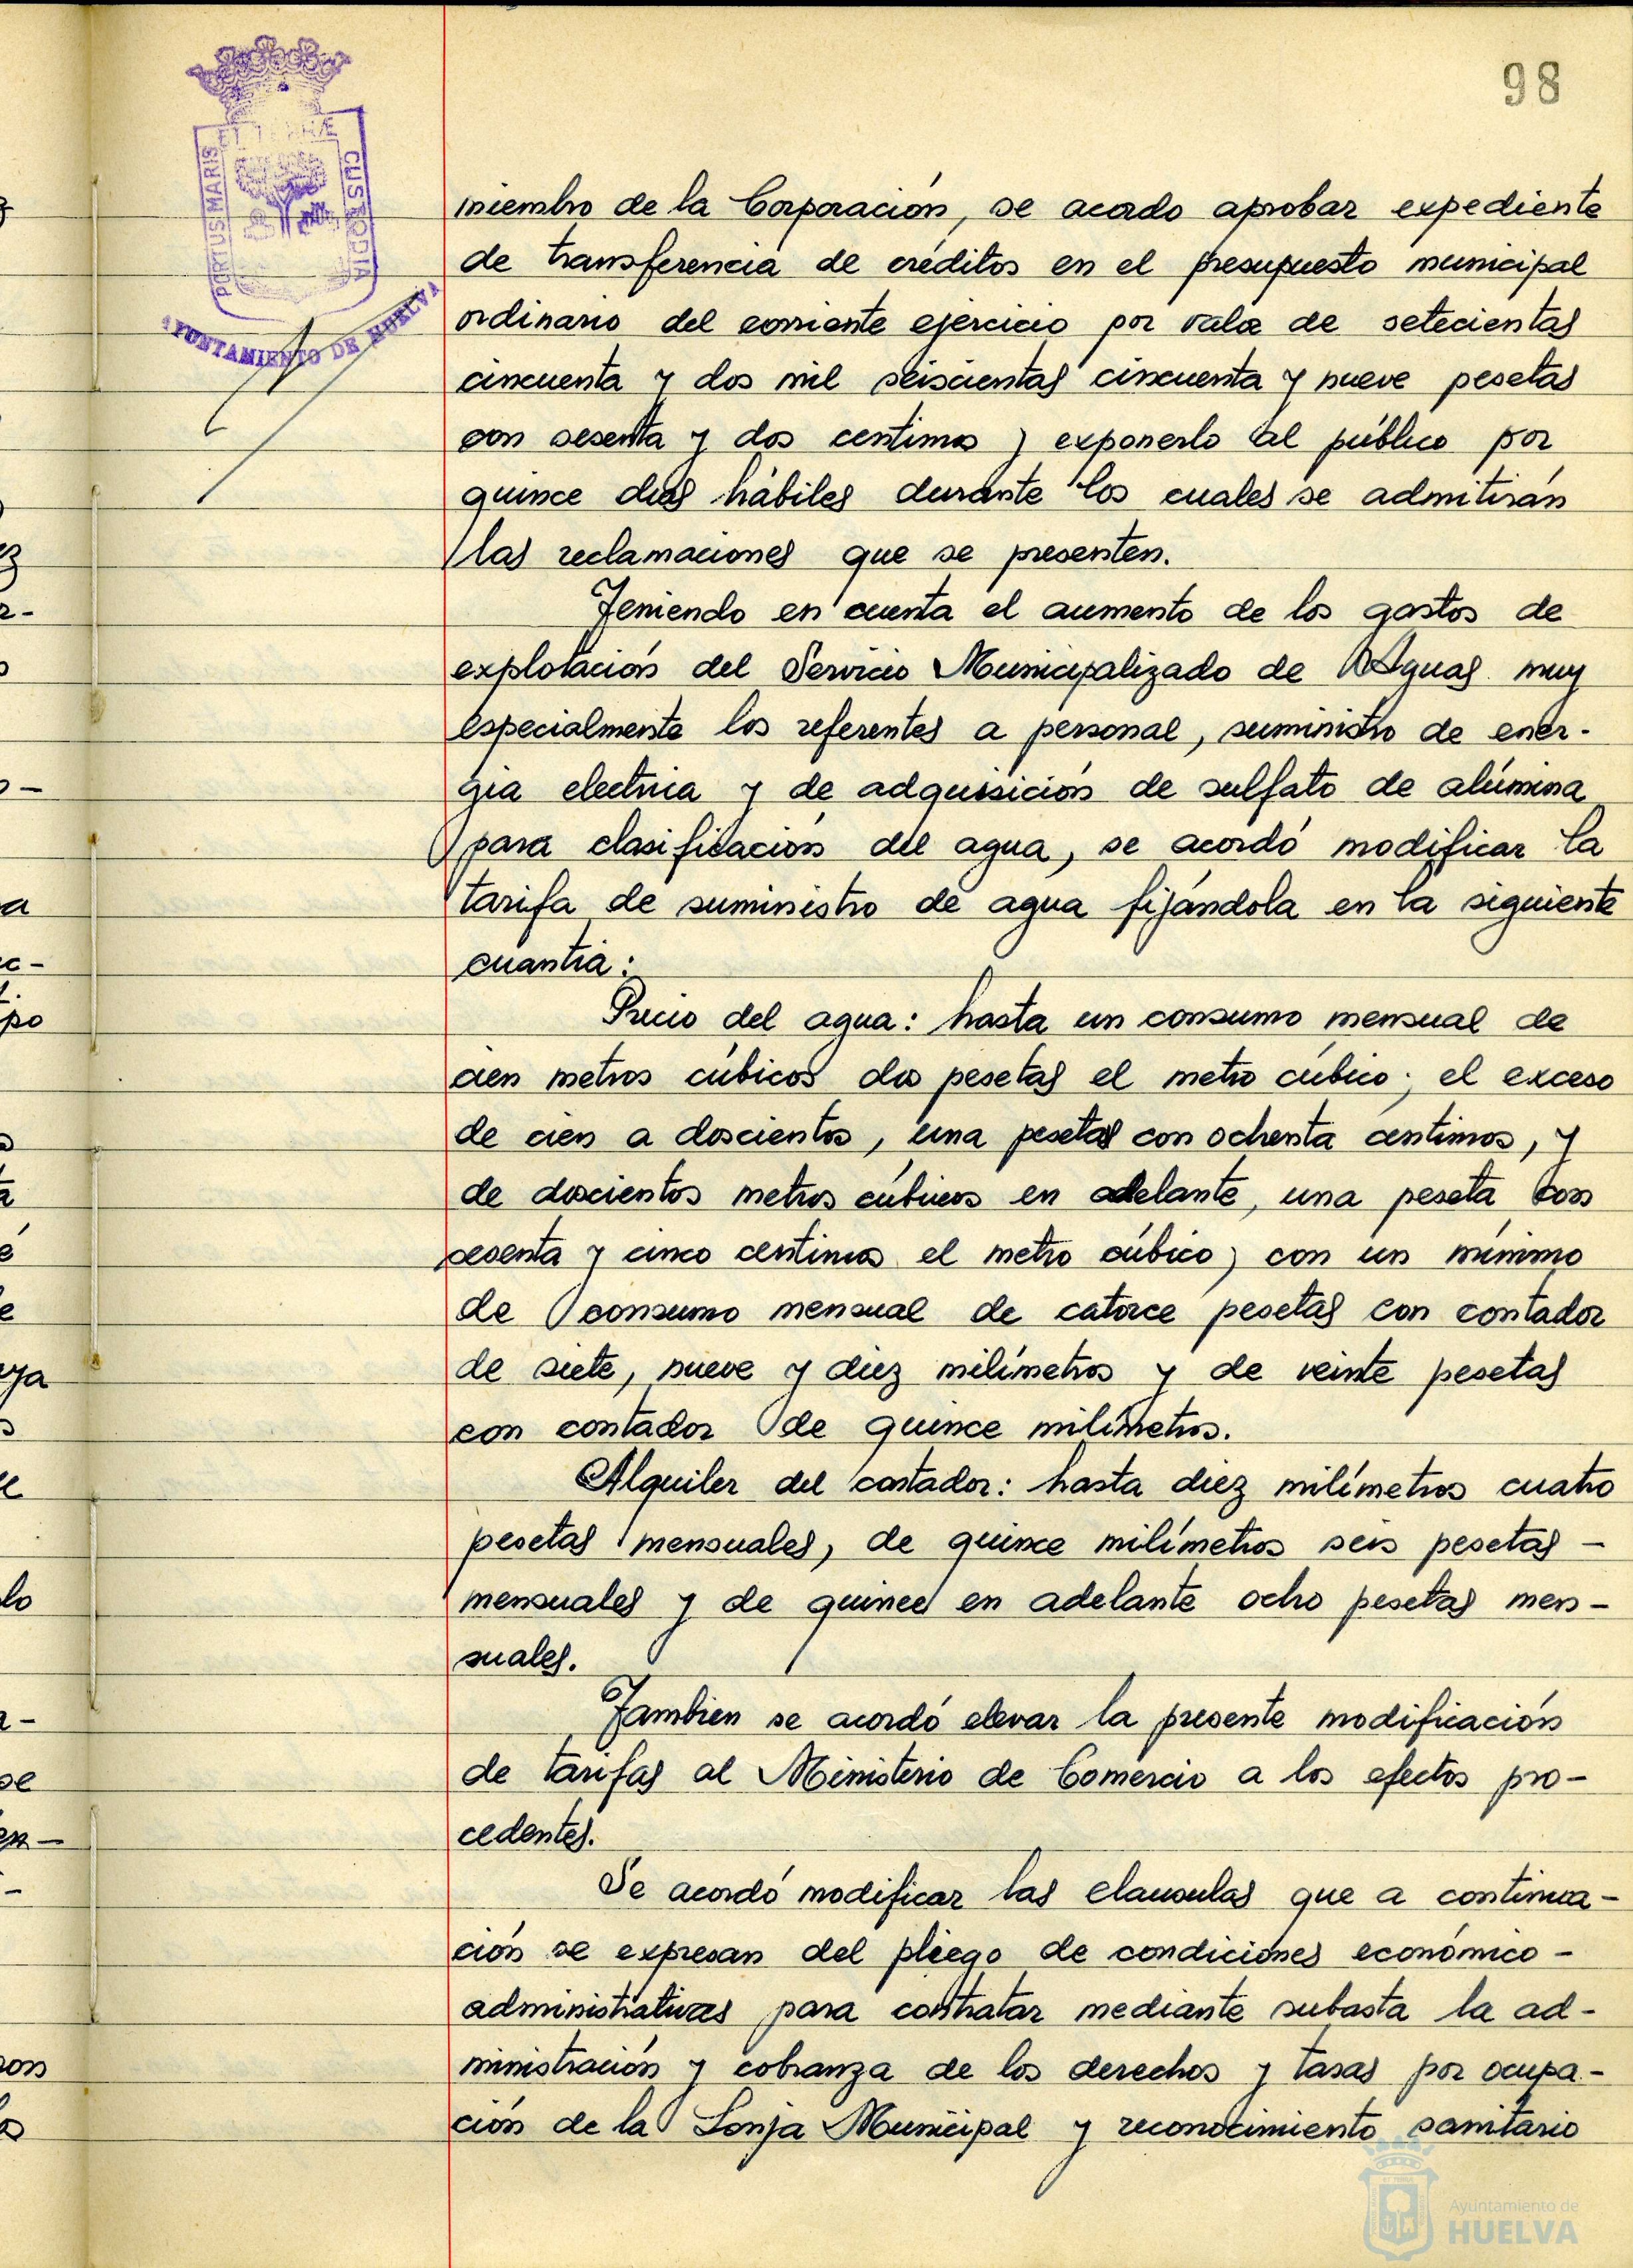 98
PORTUS MARIS
ET TERRÆ
CUSTODIA
AYUNTAMIENTO DE HUELVA
miembro de la Corporación, se acordo aprobar expediente
de transferencia de créditos en el presupuesto municipal
ordinario del corriente ejercicio por valor de setecientas
cincuenta y dos mil seiscientas cincuenta y nueve pesetas
con sesenta y dos centimos y exponerlo al público por
quince dias hábiles durante los cuales se admitirán
las reclamaciones que se presenten.
Teniendo en cuenta el aumento de los gastos de
explotación del Servicio Municipalizado de Aguas muy
especialmente los referentes a personal, suministro de ener-
gia electrica y de adquisición de sulfato de alúmina
para clasificación del agua, se acordó modificar la
tarifa de suministro de agua fijándola en la siguiente
cuantia:
Precio del agua: hasta un consumo mensual de
cien metros cúbicos dos pesetas el metro cúbico; el exceso
de cien a doscientos, una pesetas con ochenta centimos, y
de doscientos metros cúbicos en adelante, una peseta con
sesenta y cinco centimos el metro cúbico; con un minimo
de consumo mensual de catorce pesetas con contador
de siete, nueve y diez milímetros y de veinte pesetas
con contador de quince milímetros.
Alquiler del contador: hasta diez milímetros cuatro
pesetas mensuales, de quince milímetros seis pesetas -
mensuales y de quince en adelante ocho pesetas men-
suales.
Tambien se acordó elevar la presente modificación
de tarifas al Ministerio de Comercio a los efectos pro-
cedentes.
Se acordó modificar las clausulas que a continua-
ción se expresan del pliego de condiciones económico-
administrativas para contratar mediante subasta la ad-
ministración y cobranza de los derechos y tasas por ocupa-
ción de la Lonja Municipal y reconocimiento sanitario
Ayuntamiento de
HUELVA